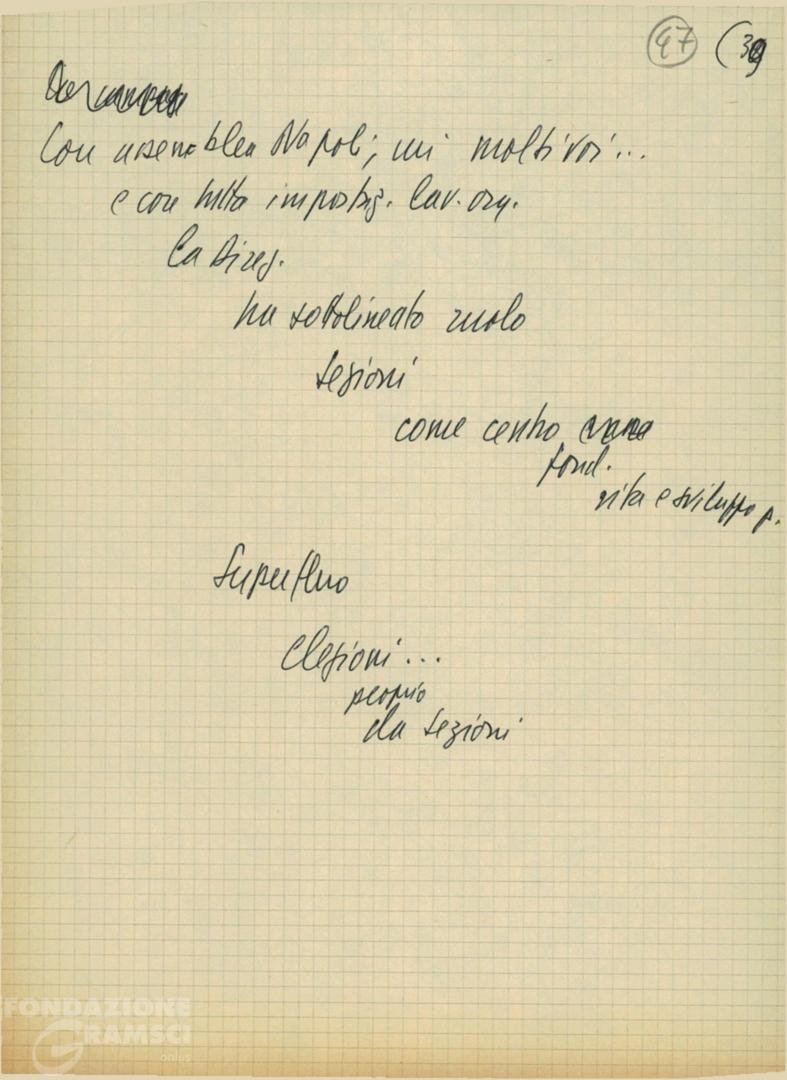 47 (39
Con assemblea Napoli; cui molti voi...
e con tutta impostaz. lav. org.
la Direz.
ha sottolineato ruolo
sezioni
come centro
fond.
vita e sviluppo p.
Superfluo
Elezioni...
proprio
da sezioni
FONDAZIONE
GRAMSCI
onlus